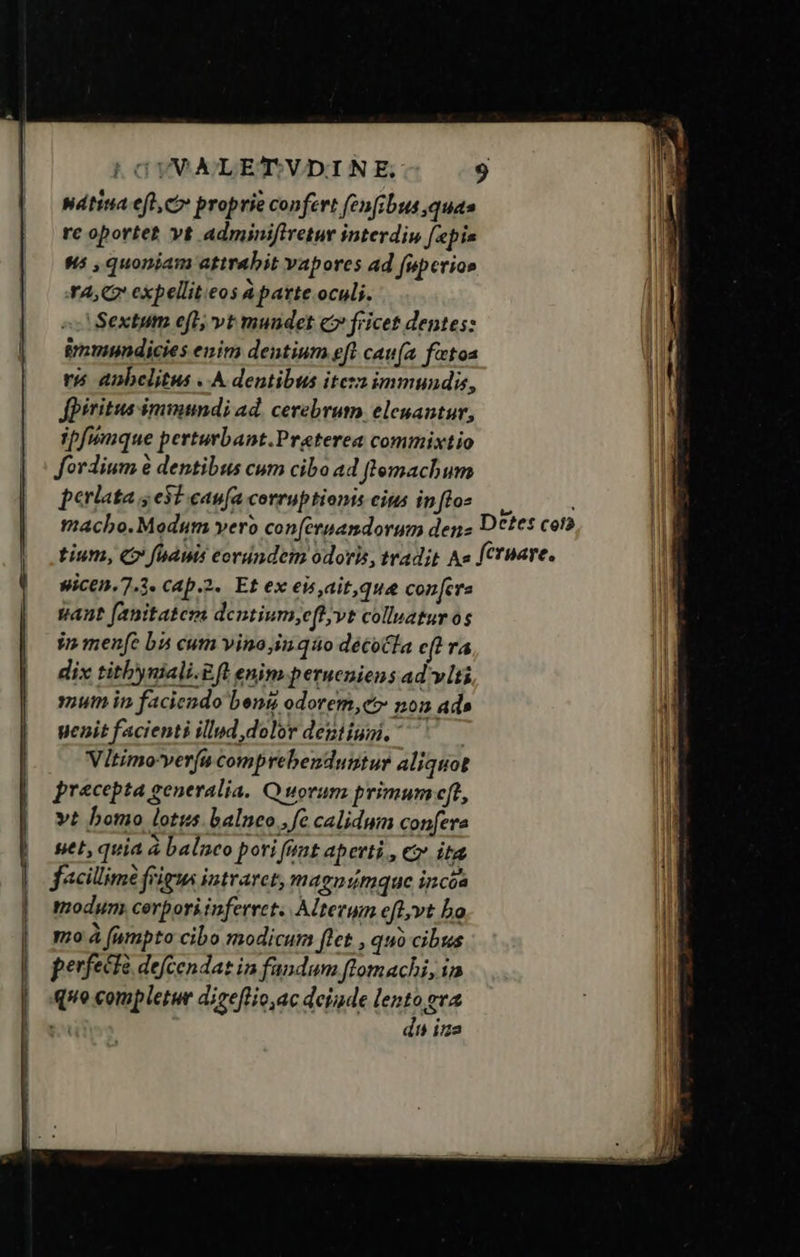 VALETVDINE. 9
nátiua eſt, & proprie confert ſenſibus, quas
re oportet vt adminiſtretur interdiu ſæpis
us, quoniam attrahit vapores ad ſuperios
ra, & expellit eos à parte oculi.
Sextum eſt, vt mundet & fricet dentes:
immundicies enim dentium eſt cauſa fœtos
ris anhelitus. A dentibus item immundis,
ſpiritus immundi ad cerebrum eleuantur,
ipſúmque perturbant. Præterea commixtio
ſordium è dentibus cum cibo ad ſtomachum
perlata, est cauſa corruptionis eius in ſto-
macho. Modum verò conſeruandorum den-
tium, & ſuauis eorúndem odoris, tradit A-
uicen. 7.3. cap. 2. Et ex eis, ait, quæ conſer-
uant ſanitatem dentium, eſt, vt colluatur os
in menſe bis cum vino, in quo decocta eſt ra
dix tithymali. Eſt enim perueniens ad vlti
mum in faciendo bonū odorem, & non ad-
uenit facienti illud, dolor dentium.
Vltimo verſu comprehenduntur aliquot
præcepta generalia. Quorum primum eſt,
vt homo lotus balneo, ſe calidum conſer-
uet, quia à balneo pori ſunt aperti, & ita
facillimè frigus intraret, magnúmque incō-
modum corpori inferret. Alterum eſt, vt ho
mo à ſumpto cibo modicum ſtet, quò cibus
perfectè deſcendat in fundum ſtomachi, in
quo completur digeſtio, ac deinde lento gra
du in-
Dētes cōs
ſeruare.